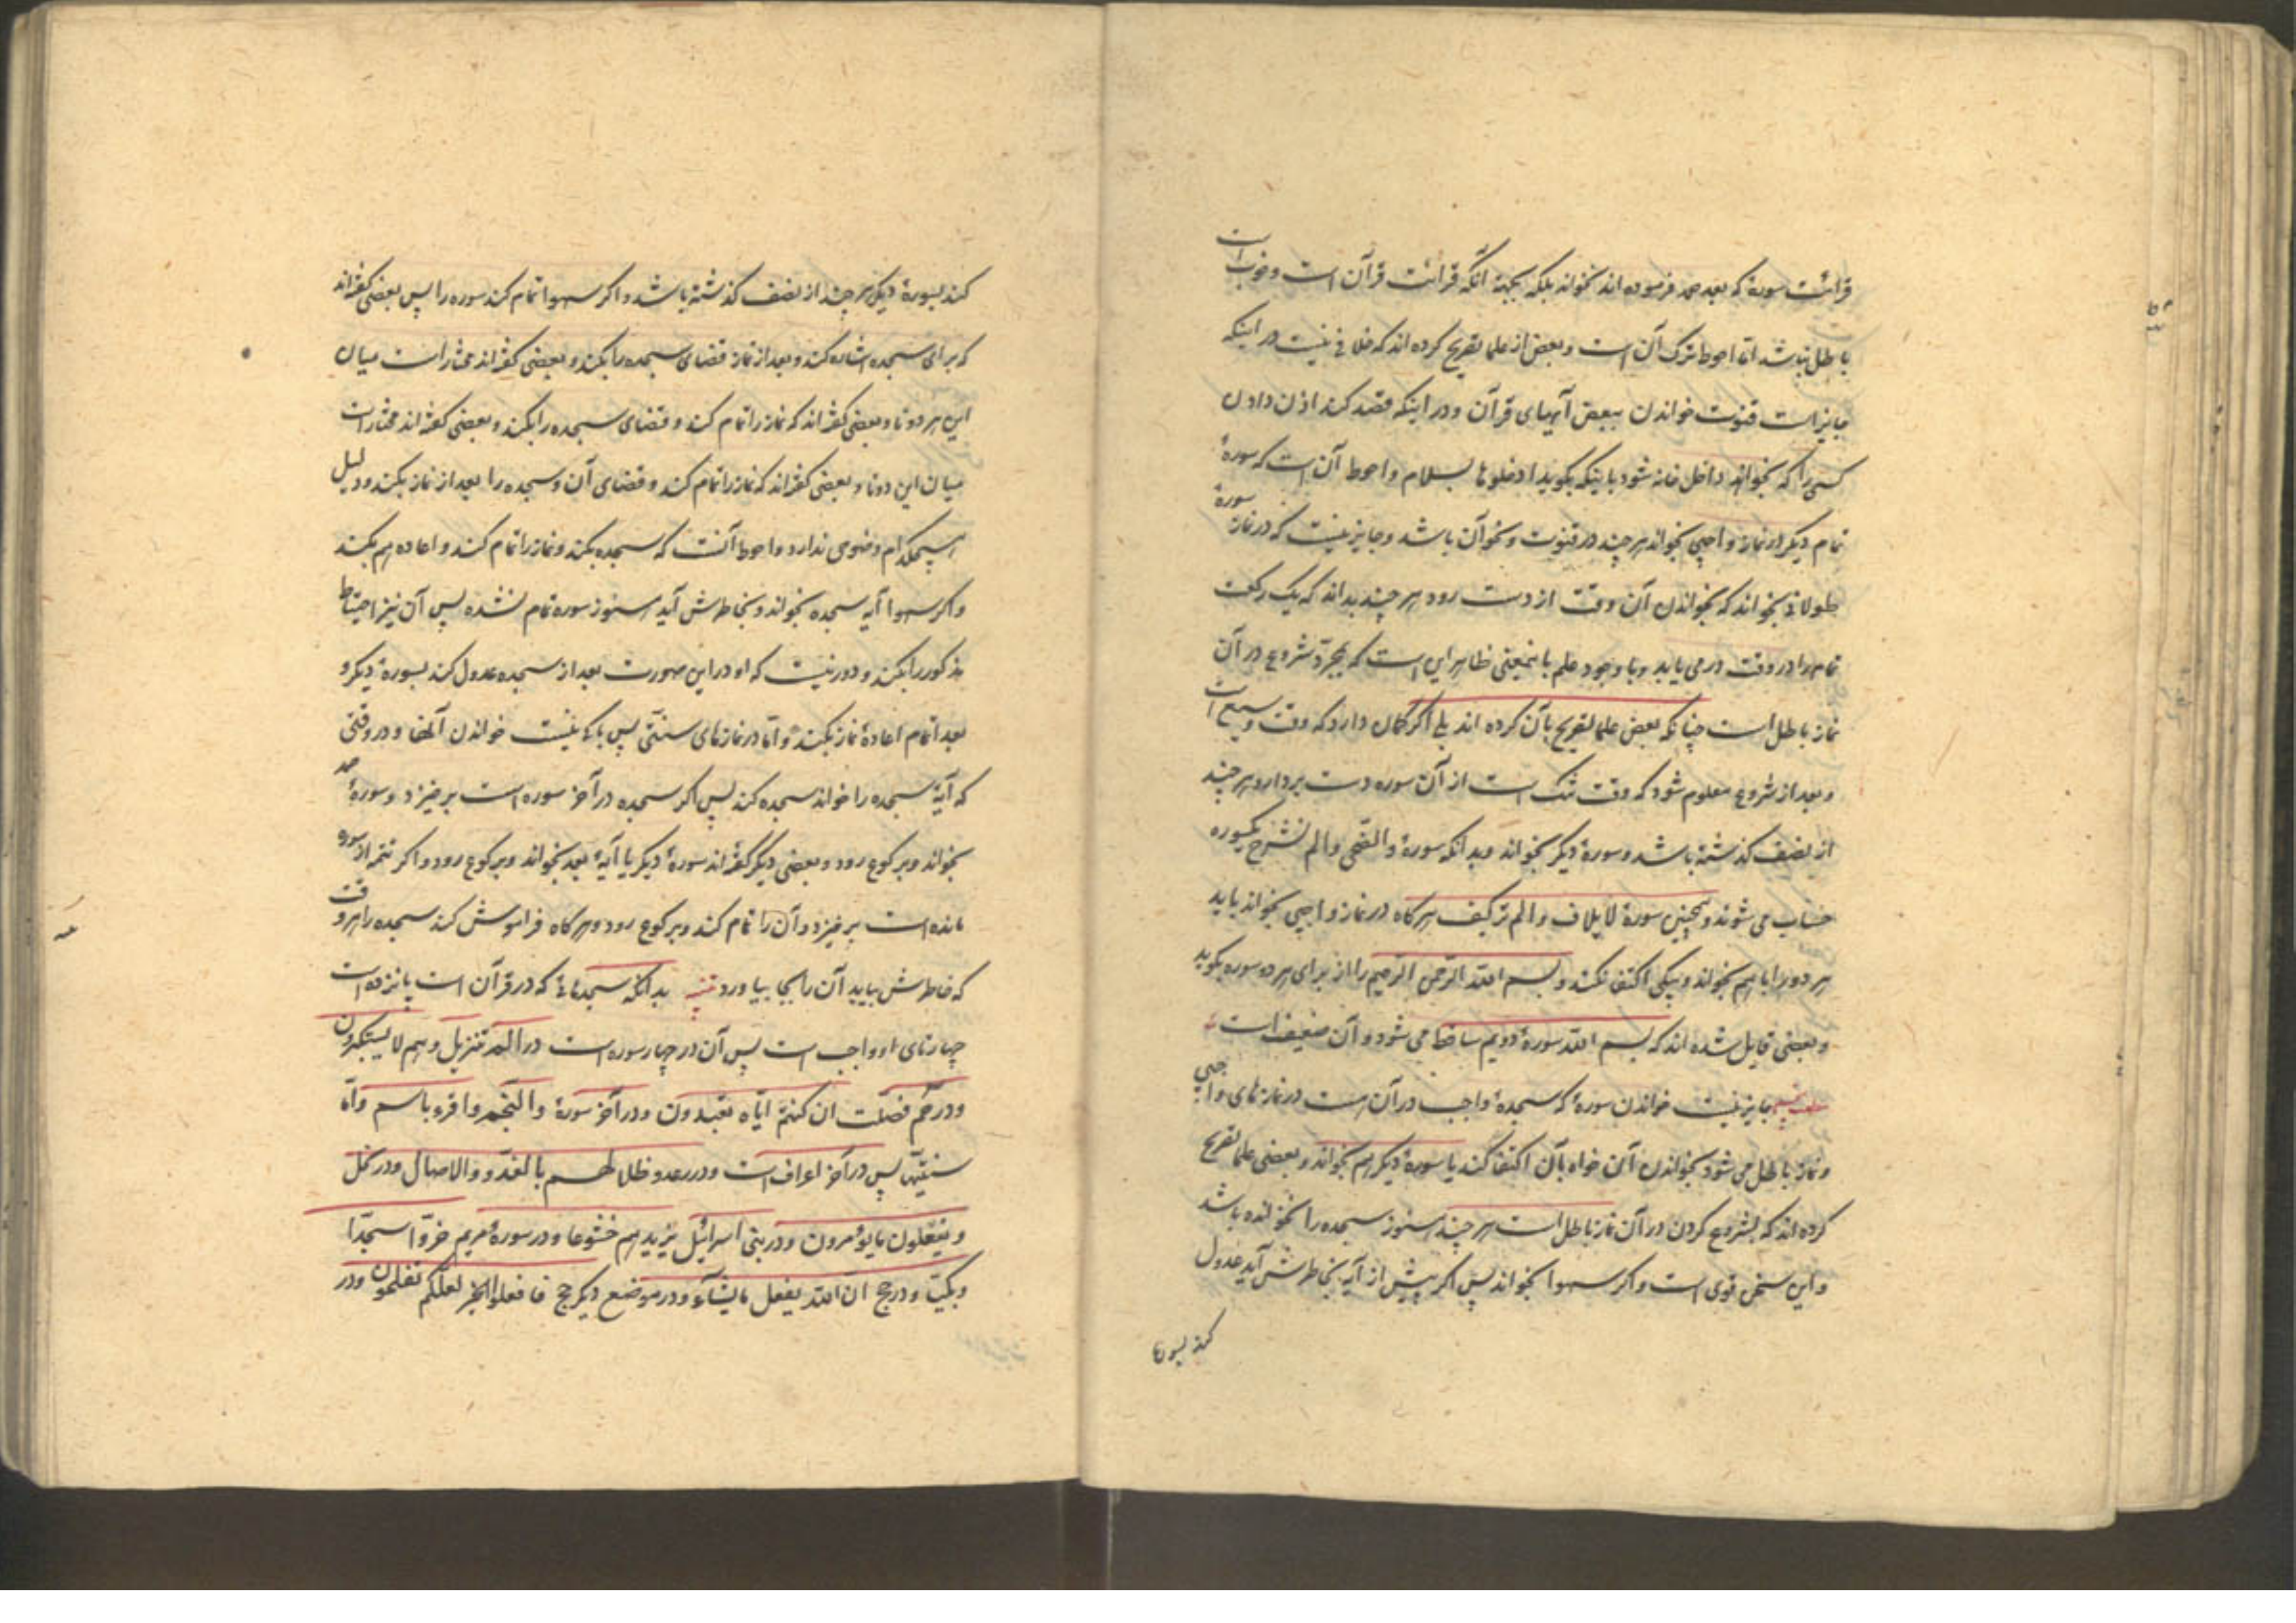 قرائت سورهٔ که بعد حمد فرموده اند نخواند بلکه بجهة آنکه قرائت قرآن است و خوب است
باطل نباشد امّا احوط ترک آن است و بعض از علما تصریح کرده اند که خلافی نیست در اینکه
جایز است قنوت خواندن ببعض آیهای قرآن و در اینکه قصد کند اذن دادن
کسی را که بخواهد داخل خانه شود باینکه بگوید ادخلوها بسلام و احوط آن است که سورهٔ
تمام دیگر در نماز واجبی نخواند هر چند در قنوت و نحو آن باشد و جایز نیست که در نماز سورهٔ
طولانی بخواند که بخواندن آن وقت از دست رود هر چند بداند که یک رکعت
تمام را در وقت درمی یابد و با وجود علم باینمعنی ظاهر این است که بمجرّد شروع در آن
نماز باطل است چنانکه بعض علما تصریح بآن کرده اند بلی اگر گمان دارد که وقت وسیع است
و بعد از شروع معلوم شود که وقت تنک است از آن سوره دست بردارد هر چند
از نصف گذشته باشد و سورهٔ دیگر بخواند و بدانکه سورهٔ والضّحی و الم نشرح یکسوره
حساب می شوند و همچنین سورهٔ لایلاف و الم تر کیف هر گاه در نماز واجبی بخواند باید
هر دو را با هم بخواند و بیکی اکتفا نکند و بسم اللّه الرّحمن الرّحیم را از برای هر دو سوره بگوید
و بعضی قایل شده اند که بسم اللّه سورهٔ دویم ساقط می شود و آن ضعیف است
جایز نیست خواندن سورهٔ که سجدهٔ واجب در آن است در نمازهای واجبی
و نماز باطل می شود بخواندن آن خواه بآن اکتفا کند یا سورهٔ دیگر هم بخواند و بعضی علما تصریح
کرده اند که بشروع کردن در آن نماز باطل است هر چند هنوز سجده را نخوانده باشد
و این سخن قوی است و اگر سهوا بخواند پس اگر پیش از آیه بخاطرش آید عدول
کند بسورهٔ
کند بسورهٔ دیگر هر چند از نصف گذشته باشد و اگر سهوا تمام کند سوره را پس بعضی گفته اند
که برای سجده اشاره کند و بعد از نماز قضای سجده را بکند و بعضی گفته اند مختار است میان
این هر دو تا و بعضی گفته اند که نماز را تمام کند و قضای سجده را بکند و بعضی گفته اند مختار است
میان این دو تا و بعضی گفته اند که نماز را تمام کند و قضای آن و سجده را بعد از نماز بکند و دلیل
هیچکدام وضوحی ندارد و احوط آنست که سجده بکند و نماز را تمام کند و اعاده هم بکند
و اگر سهوا آیه سجده بخواند و بخاطرش آید هنوز سوره تمام نشده پس آن نیز احتیاط
مذکور را بکند و دور نیست که او در این صورت بعد از سجده عدول کند بسورهٔ دیگر و
بعد اتمام اعادهٔ نماز بکند و امّا در نمازهای سنّتی پس باکی نیست خواندن آنها و در وقتی
که آیهٔ سجده را خواند سجده کند پس اگر سجده در آخر سوره است برخیزد و سورهٔ حمد
بخواند و برکوع رود و بعضی دیگر گفته اند سورهٔ دیگر یا آیهٔ بعد بخواند و برکوع رود و اگر تتمه از سوره
مانده است برخیزد و آن را تمام کند و برکوع رود و هرگاه فراموش کند سجده را هر وقت
که خاطرش بیاید آن را بجا بیاورد تنبیه بدانکه سجدهائی که در قرآن است پانزده است
چهارتای او واجب است پس آن در چهار سوره است در الم تنزیل و هم لا یستکبرون
و در حم فصّلت ان کنتم ایّاه تعبدون و در آخر سورهٔ والنّجم و اقرء باسم و امّا
سنّتیها پس در آخر اعراف است و در رعد و ظلالهم بالغدوّ و الاصال و در نحل
و یفعلون ما یؤمرون و در بنی اسرائیل یزیدهم خشوعا و در سورهٔ مریم خرّوا سجّدا
و بکیّا و در حج ان اللّه یفعل ما یشآء و در موضع دیگر حج و افعلوا الخیر لعلّکم تفلحون و در